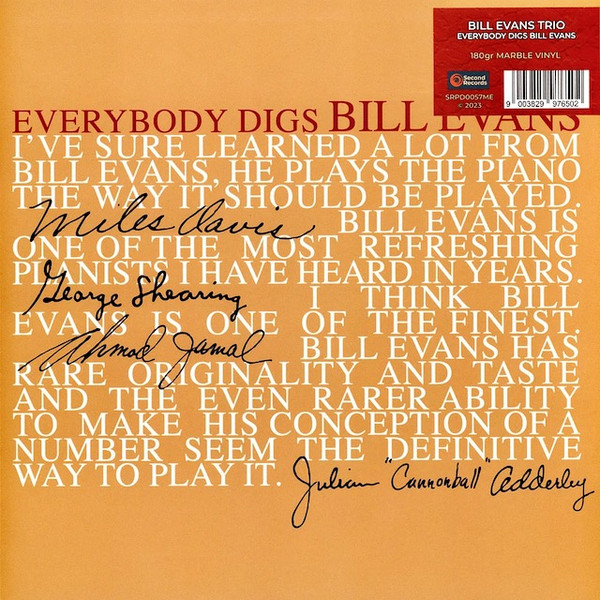 BILL EVANS TRIO
EVERYBODY DIGS BILL EVANS
180gr MARBLE VINYL
Second
Records
SRPD0057ME
© 2023
9 003829 976502
EVERYBODY DIGS BILL EVANS
I'VE SURE LEARNED A LOT FROM
BILL EVANS, HE PLAYS THE PIANO
THE WAY IT SHOULD BE PLAYED.
Miles Davis BILL EVANS IS
ONE OF THE MOST REFRESHING
PIANISTS I HAVE HEARD IN YEARS.
George Shearing I THINK BILL
EVANS IS ONE OF THE FINEST.
Ahmad Jamal BILL EVANS HAS
RARE ORIGINALITY AND TASTE
AND THE EVEN RARER ABILITY
TO MAKE HIS CONCEPTION OF A
NUMBER SEEM THE DEFINITIVE
WAY TO PLAY IT. Julian "Cannonball" Adderley